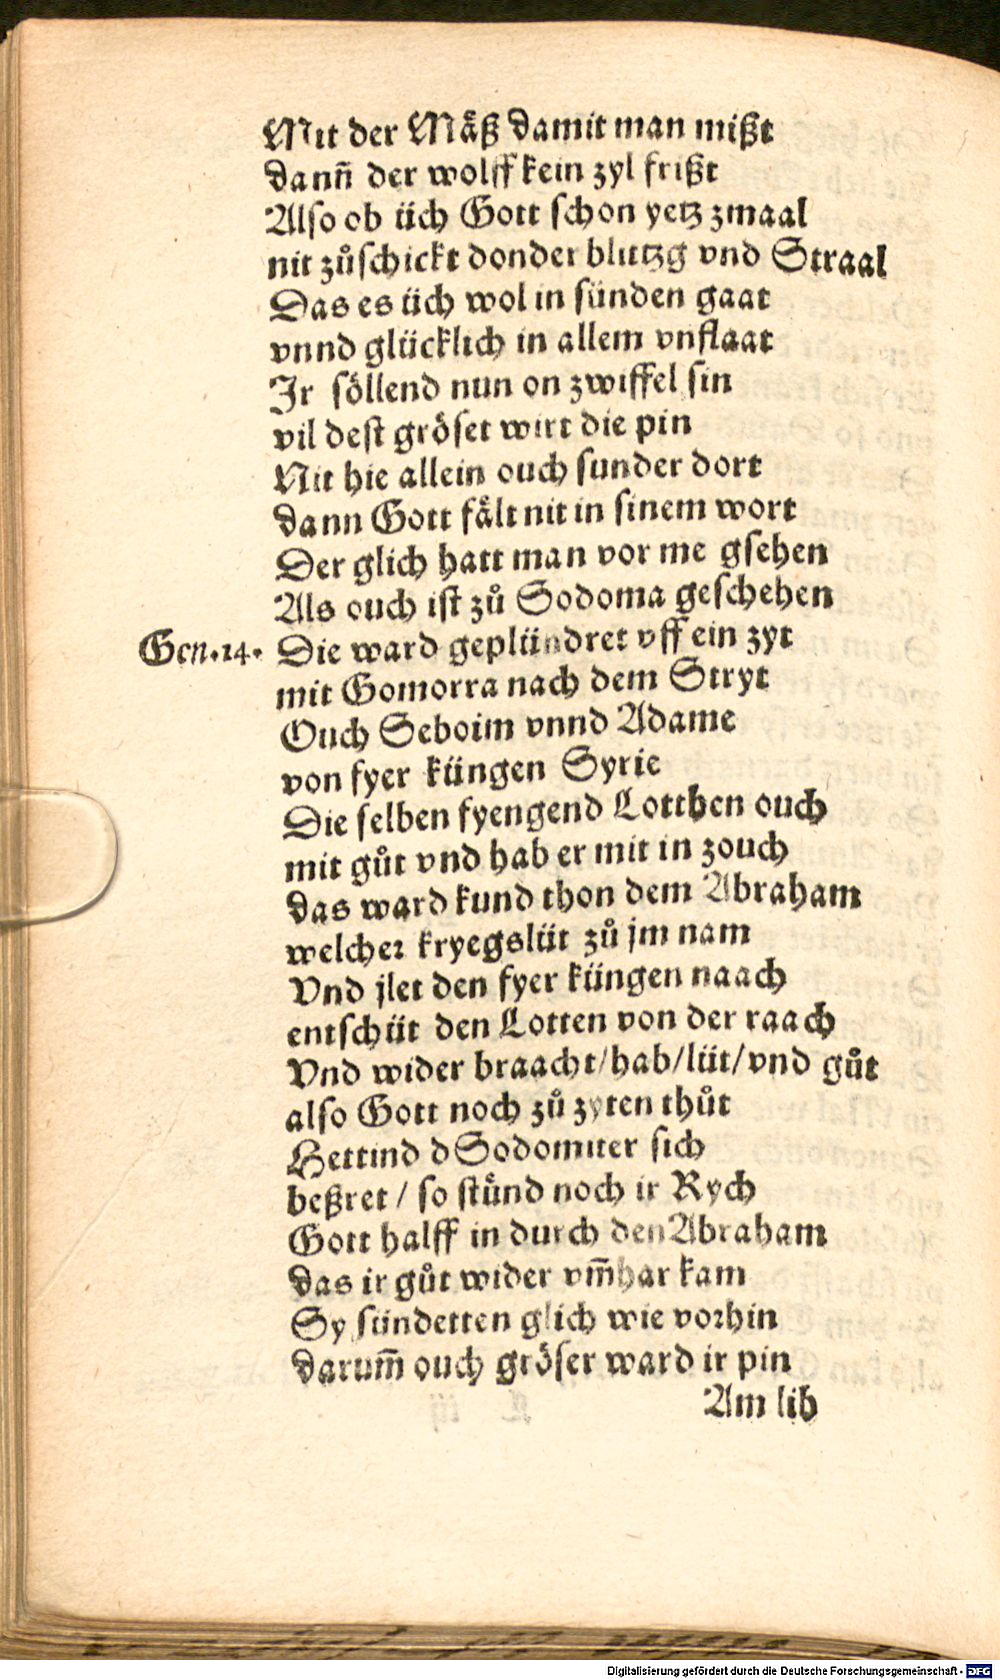 Mit der Mäß damit man mißt
dann̄ der wolff kein zyl frißt
Also ob üch Gott schon yetz zmaal
nit zůschickt donder blittzg vnd Straal
Das es üch wol in sünden gaat
vnnd glücklich in allem vnflaat
Jr söllend nun on zwiffel sin
vil dest gröset wirt die pin
Nit hie allein ouch sunder dort
dann Gott fält nit in sinem wort
Der glich hatt man vor me gsehen
Als ouch ist zů Sodoma geschehen
Gen.14. Die ward geplündret vff ein zyt
mit Gomorra nach dem Stryt
Ouch Seboim vnnd Adame
von fyer küngen Syrie
Die selben fyengend Lotthen ouch
mit gůt vnd hab er mit in zouch
das ward kund thon dem Abraham
welcher kryegslüt zů jm nam
Vnd jlet den fyer küngen naach
entschüt den Lotten von der raach
Vnd wider braacht/hab/lüt/vnd gůt
also Gott noch zů zyten thůt
Hettind d Sodomiter sich
beßret / so stünd noch ir Rych
Gott halff in durch den Abraham
das ir gůt wider vm̄har kam
Sy sündetten glich wie vorhin
darum̄ ouch gröser ward ir pin
Am lib
Digitalisierung gefördert durch die Deutsche Forschungsgemeinschaft - DFG